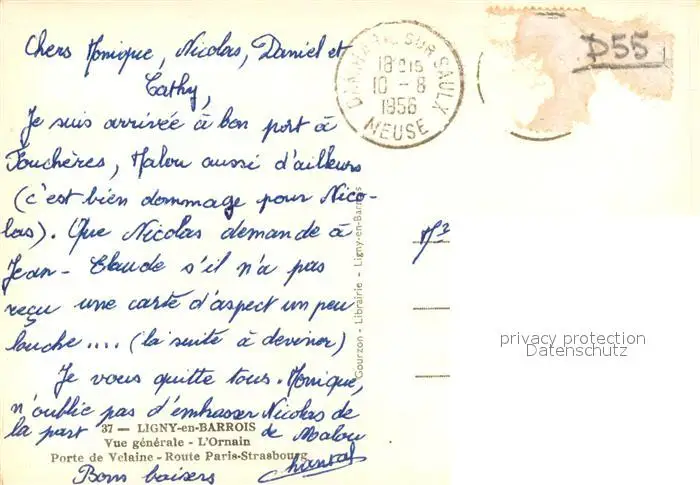 Chers Monique, Nicolas, Daniel et
Cathy,
Je suis arrivée à bon port à
Fouchères, Malou aussi d'ailleurs
(c'est bien dommage pour Nico-
las). Que Nicolas demande à
Jean-Claude s'il n'a pas
reçu une carte d'aspect un peu
louche .... (la suite à deviner)
Je vous quitte tous. Monique,
n'oublie pas d'embrasser Nicolas de
la part de Malou
Bons baisers
Chantal
37 — LIGNY-en-BARROIS
Vue générale - L'Ornain
Porte de Velaine - Route Paris-Strasbourg
Gourzon - Librairie - Ligny-en-Barrois
SUR SAULX
18H15
10 - 8
1956
MEUSE
D55
privacy protection
Datenschutz